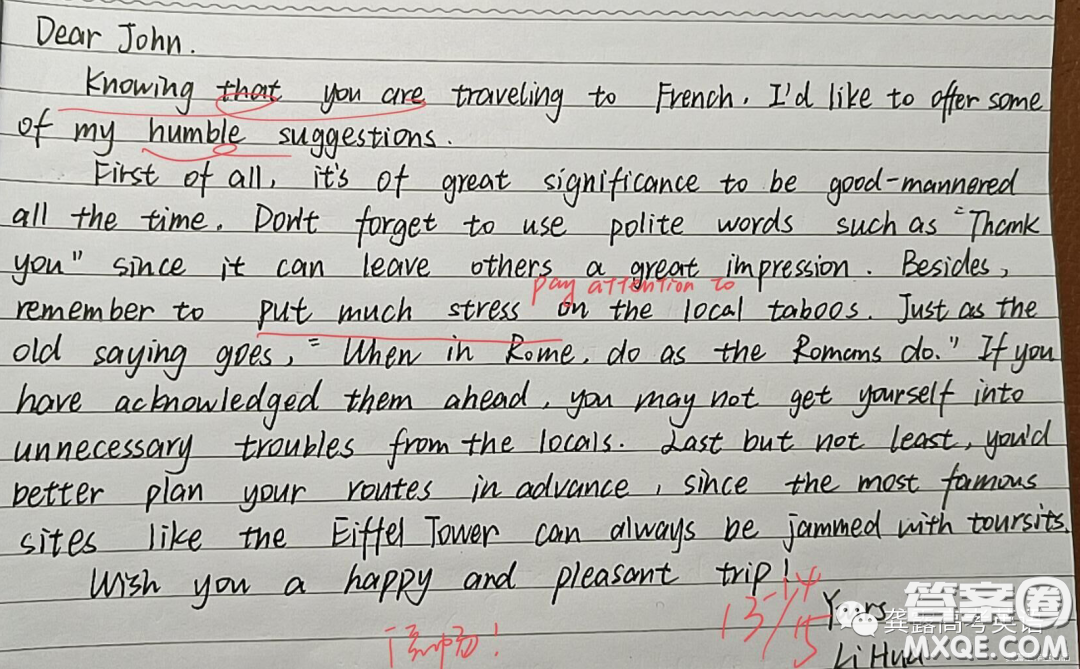 Dear John.
Knowing that you are traveling to French. I'd like to offer some
of my humble suggestions.
First of all, it's of great significance to be good-mannered
all the time. Don't forget to use polite words such as "Thank
you" since it can leave others a great impression. Besides,
pay attention to
remember to put much stress on the local taboos. Just as the
old saying goes, "When in Rome, do as the Romans do." If you
have acknowledged them ahead, you may not get yourself into
unnecessary troubles from the locals. Last but not least, you'd
better plan your routes in advance, since the most famous
sites like the Eiffel Tower can always be jammed with toursits.
Wish you a happy and pleasant trip!
13-14/15
Yours
Li Hua
龚露高考英语
答案圈
MXQE.COM